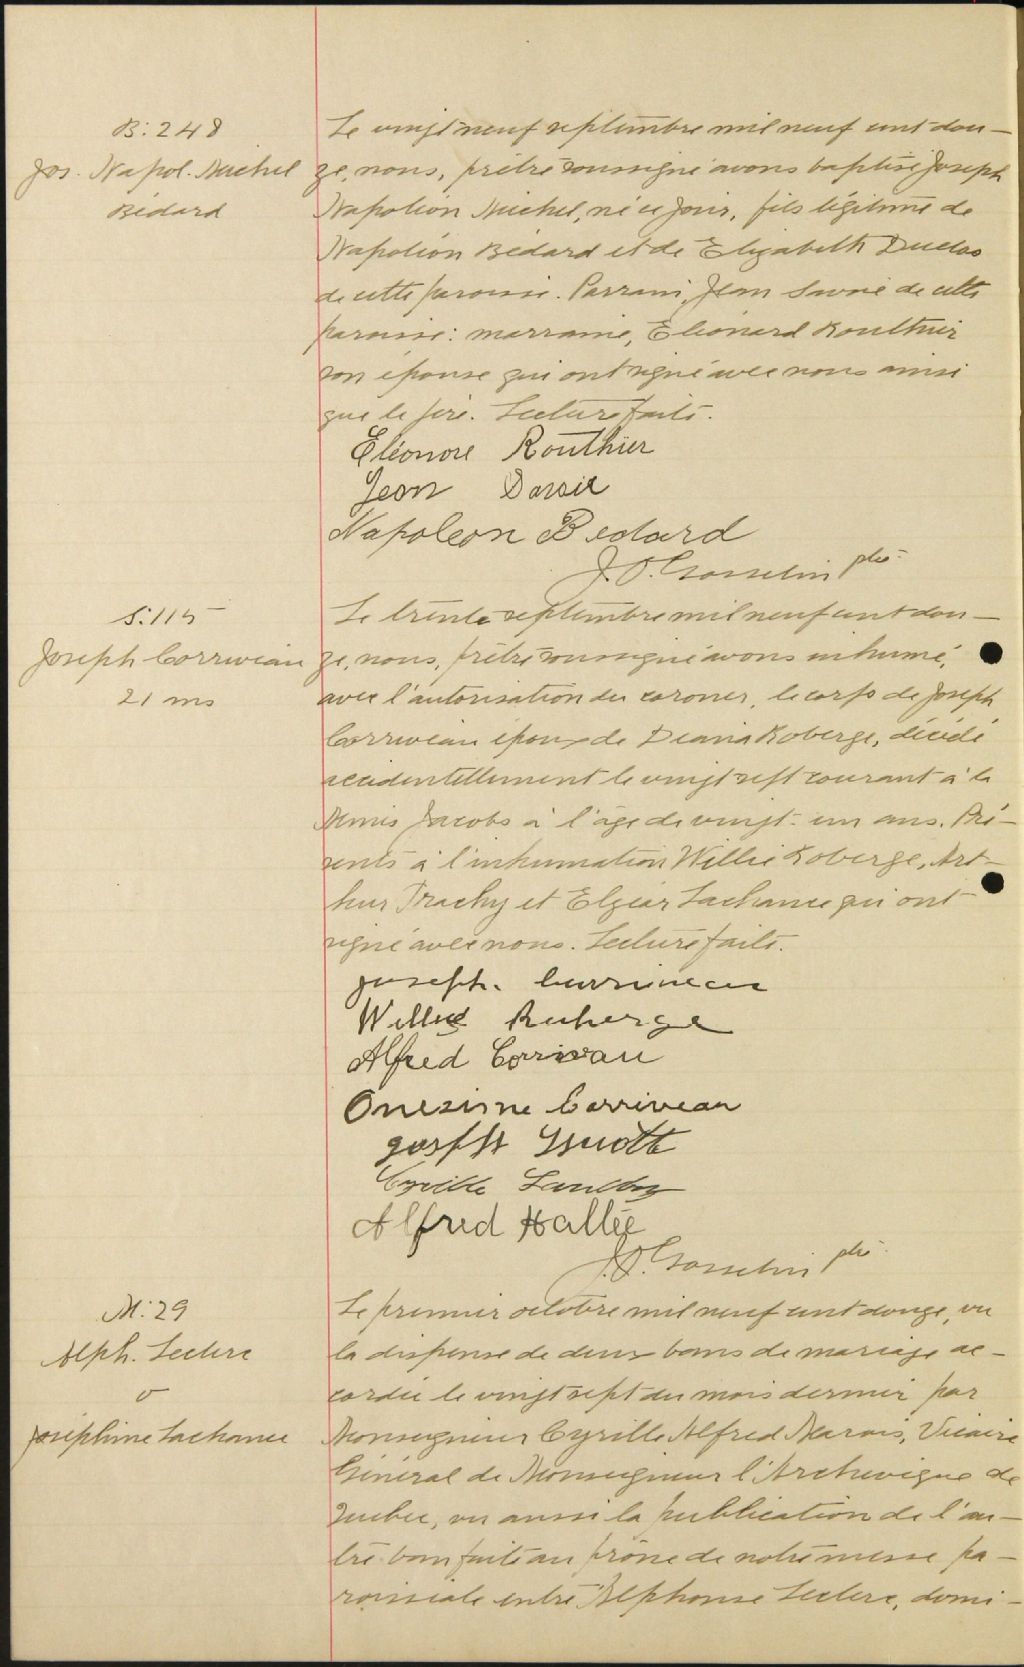 B: 248
Jos. Napol. Michel
Bédard
Le vingt neuf septembre mil neuf cent dou-
ze, nous, prêtre soussigné avons baptisé Joseph
Napoléon Michel, né ce jour, fils légitime de
Napoléon Bédard et de Elizabeth Duclos
de cette paroisse. Parrain, Jean Savoie de cette
paroisse: marraine, Eléonard Routhier
son épouse qui ont signé avec nous ainsi
que le père. Lecture faite.
Eléonore Routhier
Jean
Napoleon Bedard
J. O. Gosselin ptre
S. 115
Joseph Corriveau
21 ans
Le trente septembre mil neuf cent dou-
ze, nous, prêtre soussigné avons inhumé,
avec l'autorisation du coroner, le corps de Joseph
Corriveau époux de Deania Roberge, décédé
accidentellement le vingt sept courant à la
Mines Jacobs à l'âge de vingt-un ans. Pré-
sents à l'inhumation Willie Roberge, Art-
hur Trachy et Elzéar Lachance qui ont
signé avec nous. Lecture faite.
Joseph. Curriveau
Willie Ruberge
Alfred Corrivau
Onezime Carriveau
Cyrille
Alfred Hallée
J. O. Gosselin ptre
M: 29
Alph. Leclerc
&
Joséphine Lachance
Le premier octobre mil neuf cent douze, vu
la dispense de deux bans de mariage ac-
cordée le vingt sept du mois dernier par
Monseigneur Cyrille Alfred Marois, Vicaire
Général de Monseigneur l'Archevêque de
Quebec, vu aussi la publication de l'au-
tre ban faite au prône de notre messe pa-
roissiale entre Alphonse Leclerc, domi-